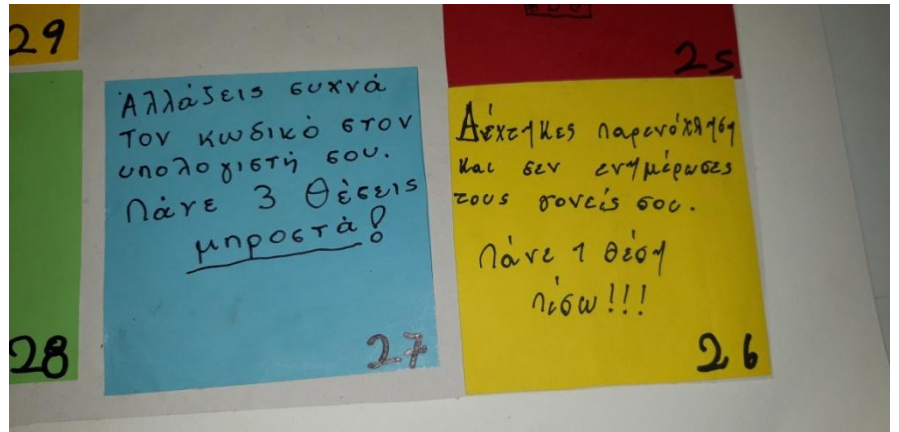 29
25
Αλλάζεις συχνά
τον κωδικό στον
υπολογιστή σου.
Πάνε 3 θέσεις
μπροστά!
27
Δέχτηκες παρενόχληση
και δεν ενημέρωσες
τους γονείς σου.
Πάνε 1 θέση
πίσω!!!
26
28